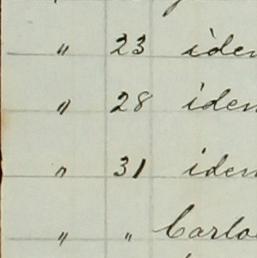 " 23 iden
" 28 iden
" 31 iden
" " Carlo